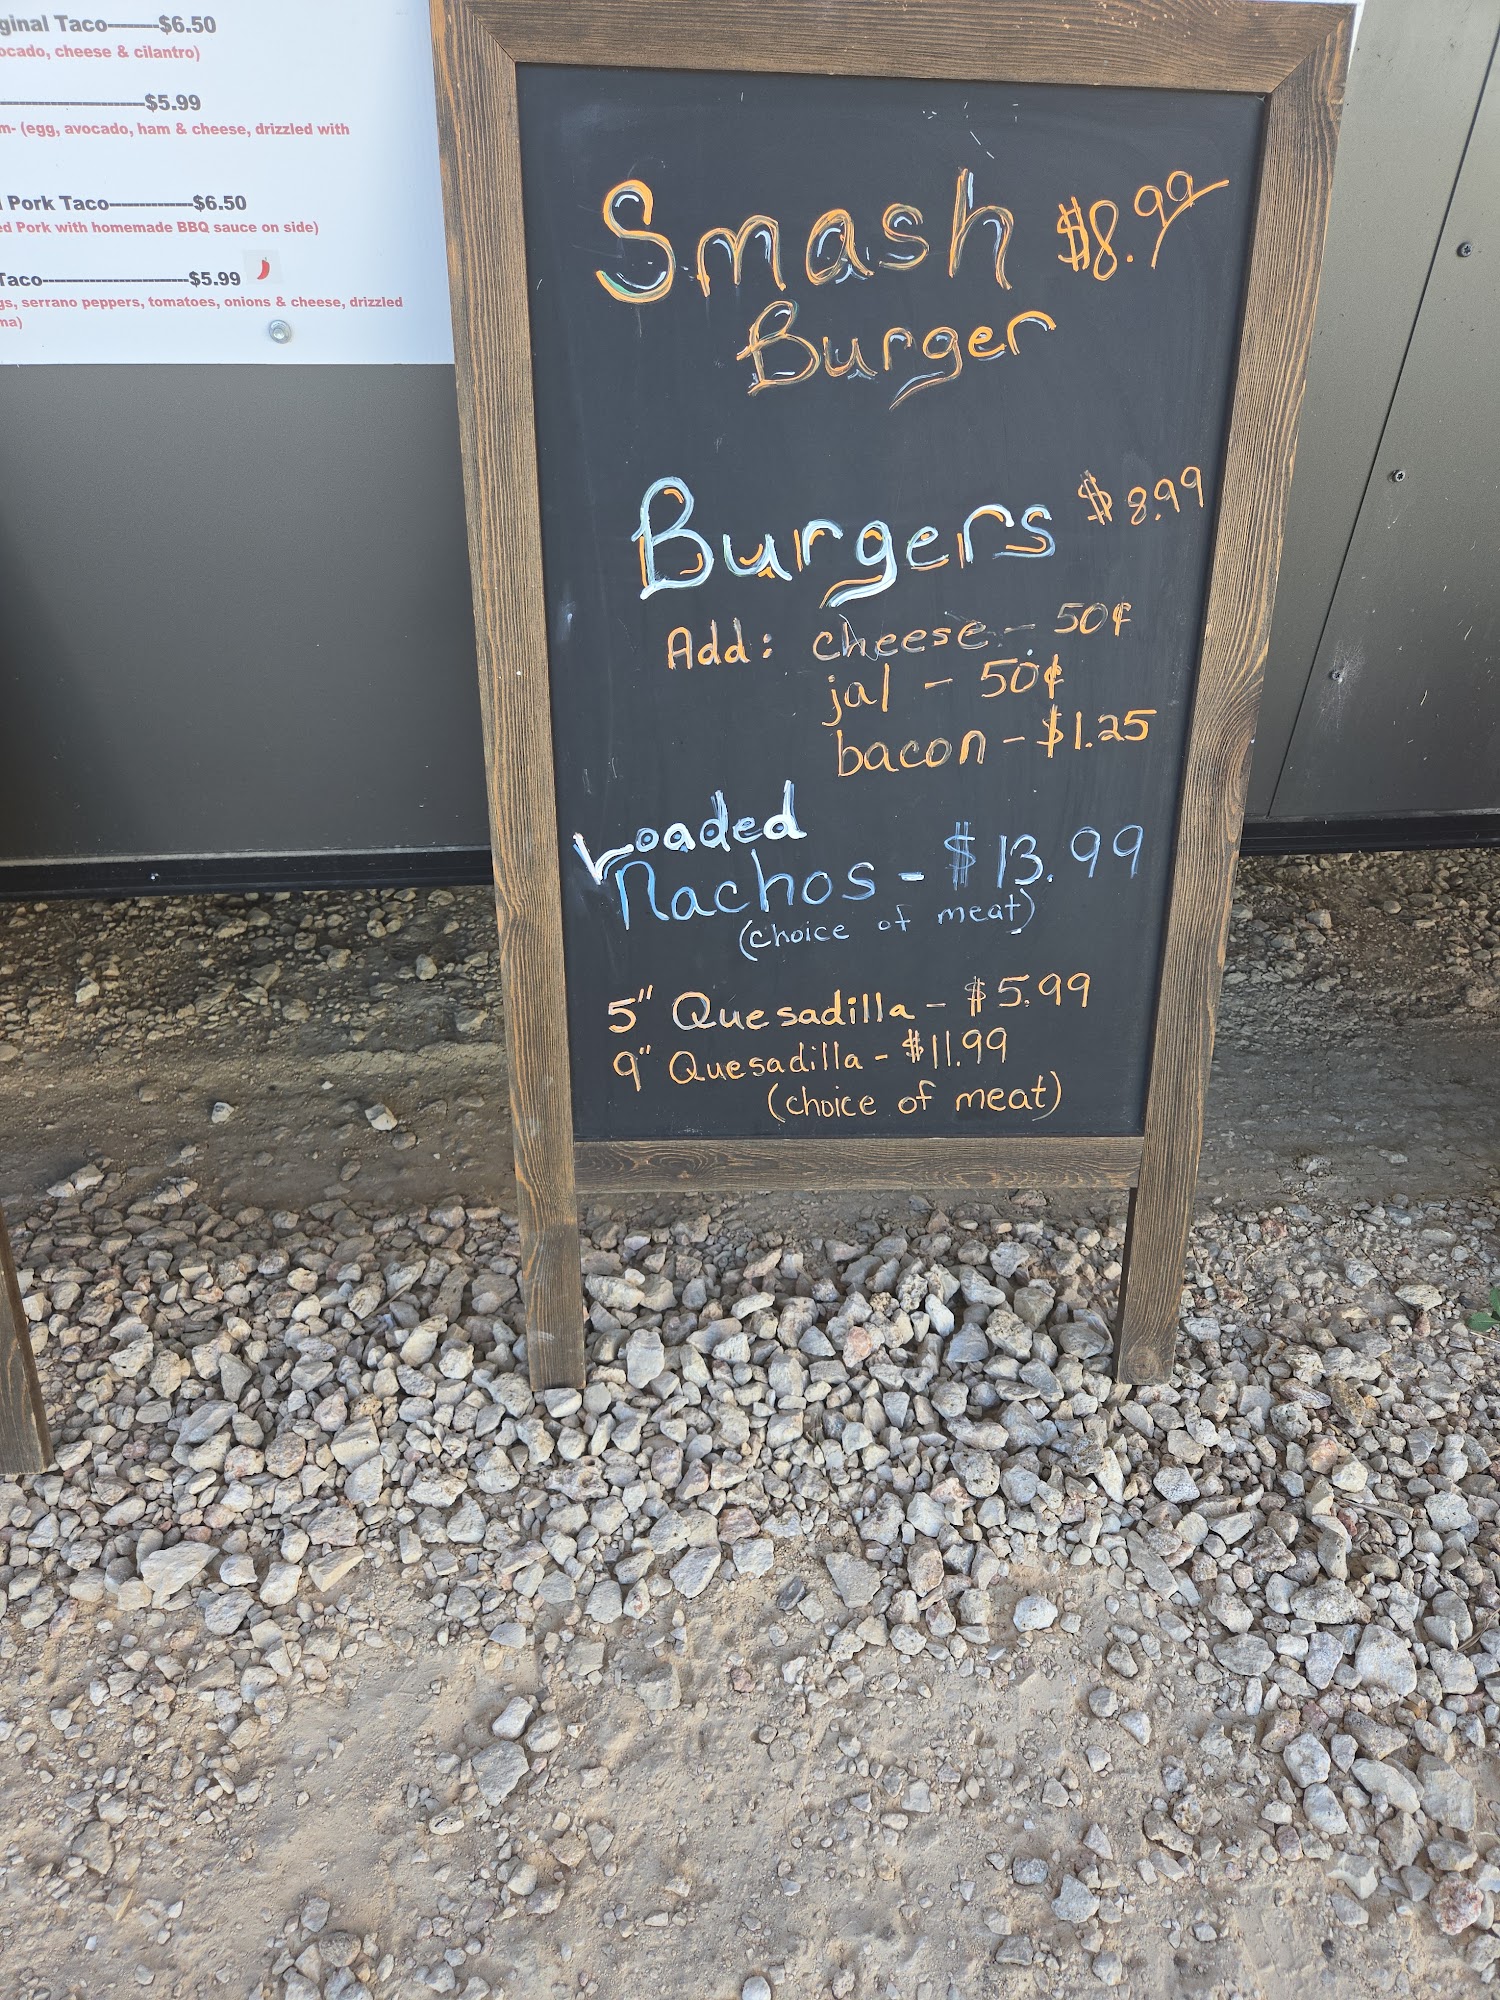 ginal Taco-------$6.50
ocado, cheese & cilantro)
--------------------$5.99
m- (egg, avocado, ham & cheese, drizzled with
Pork Taco------------$6.50
ed Pork with homemade BBQ sauce on side)
Taco--------------------$5.99
gs, serrano peppers, tomatoes, onions & cheese, drizzled
ma)
Smash $8.99
Burger
Burgers $8.99
Add: cheese - 50¢
jal - 50¢
bacon - $1.25
Loaded
Nachos - $13.99
(choice of meat)
5" Quesadilla - $5.99
9" Quesadilla - $11.99
(choice of meat)